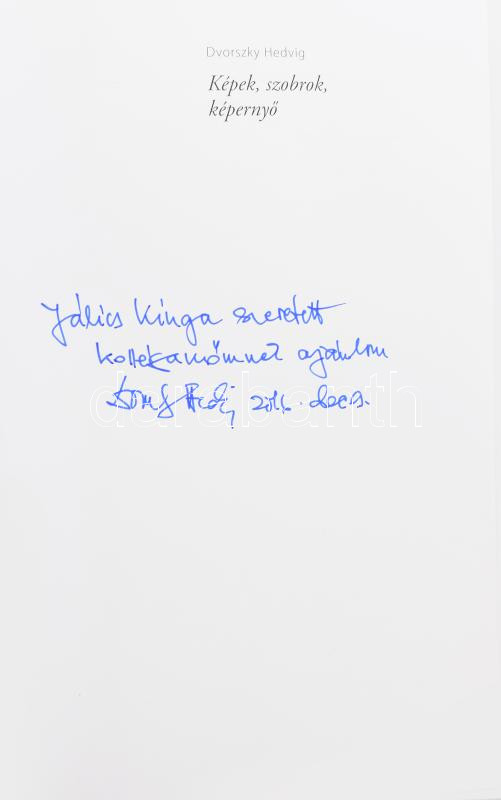 Dvorszky Hedvig
Képek, szobrok,
képernyő
Jálics Kinga szeretett
kollekanőmnek ajánlom
2016. dec.
darabanth